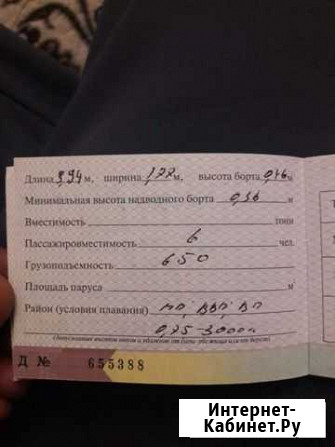 Длина 3,94 м, ширина 1,22 м, высота борта 0,46 м
Минимальная высота надводного борта 0,36 м
Вместимость тонн
Пассажировместимость 6 чел.
Грузоподъемность 650
Площадь паруса м
Район (условия плавания) МП; ВВП; ВП
0,25-3000м
(допускаемая высота волны и удаление от базы-убежища или от берега)
Д № 655388
Интернет-
Кабинет.Ру